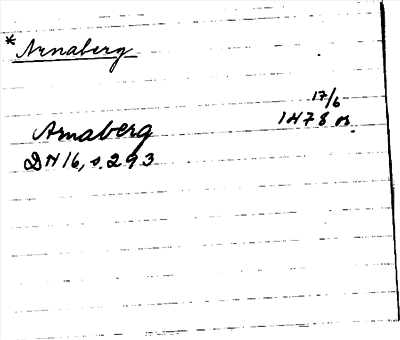 * Arnaberg
17/6
Arnaberg 1478 or.
DN 16, s. 293